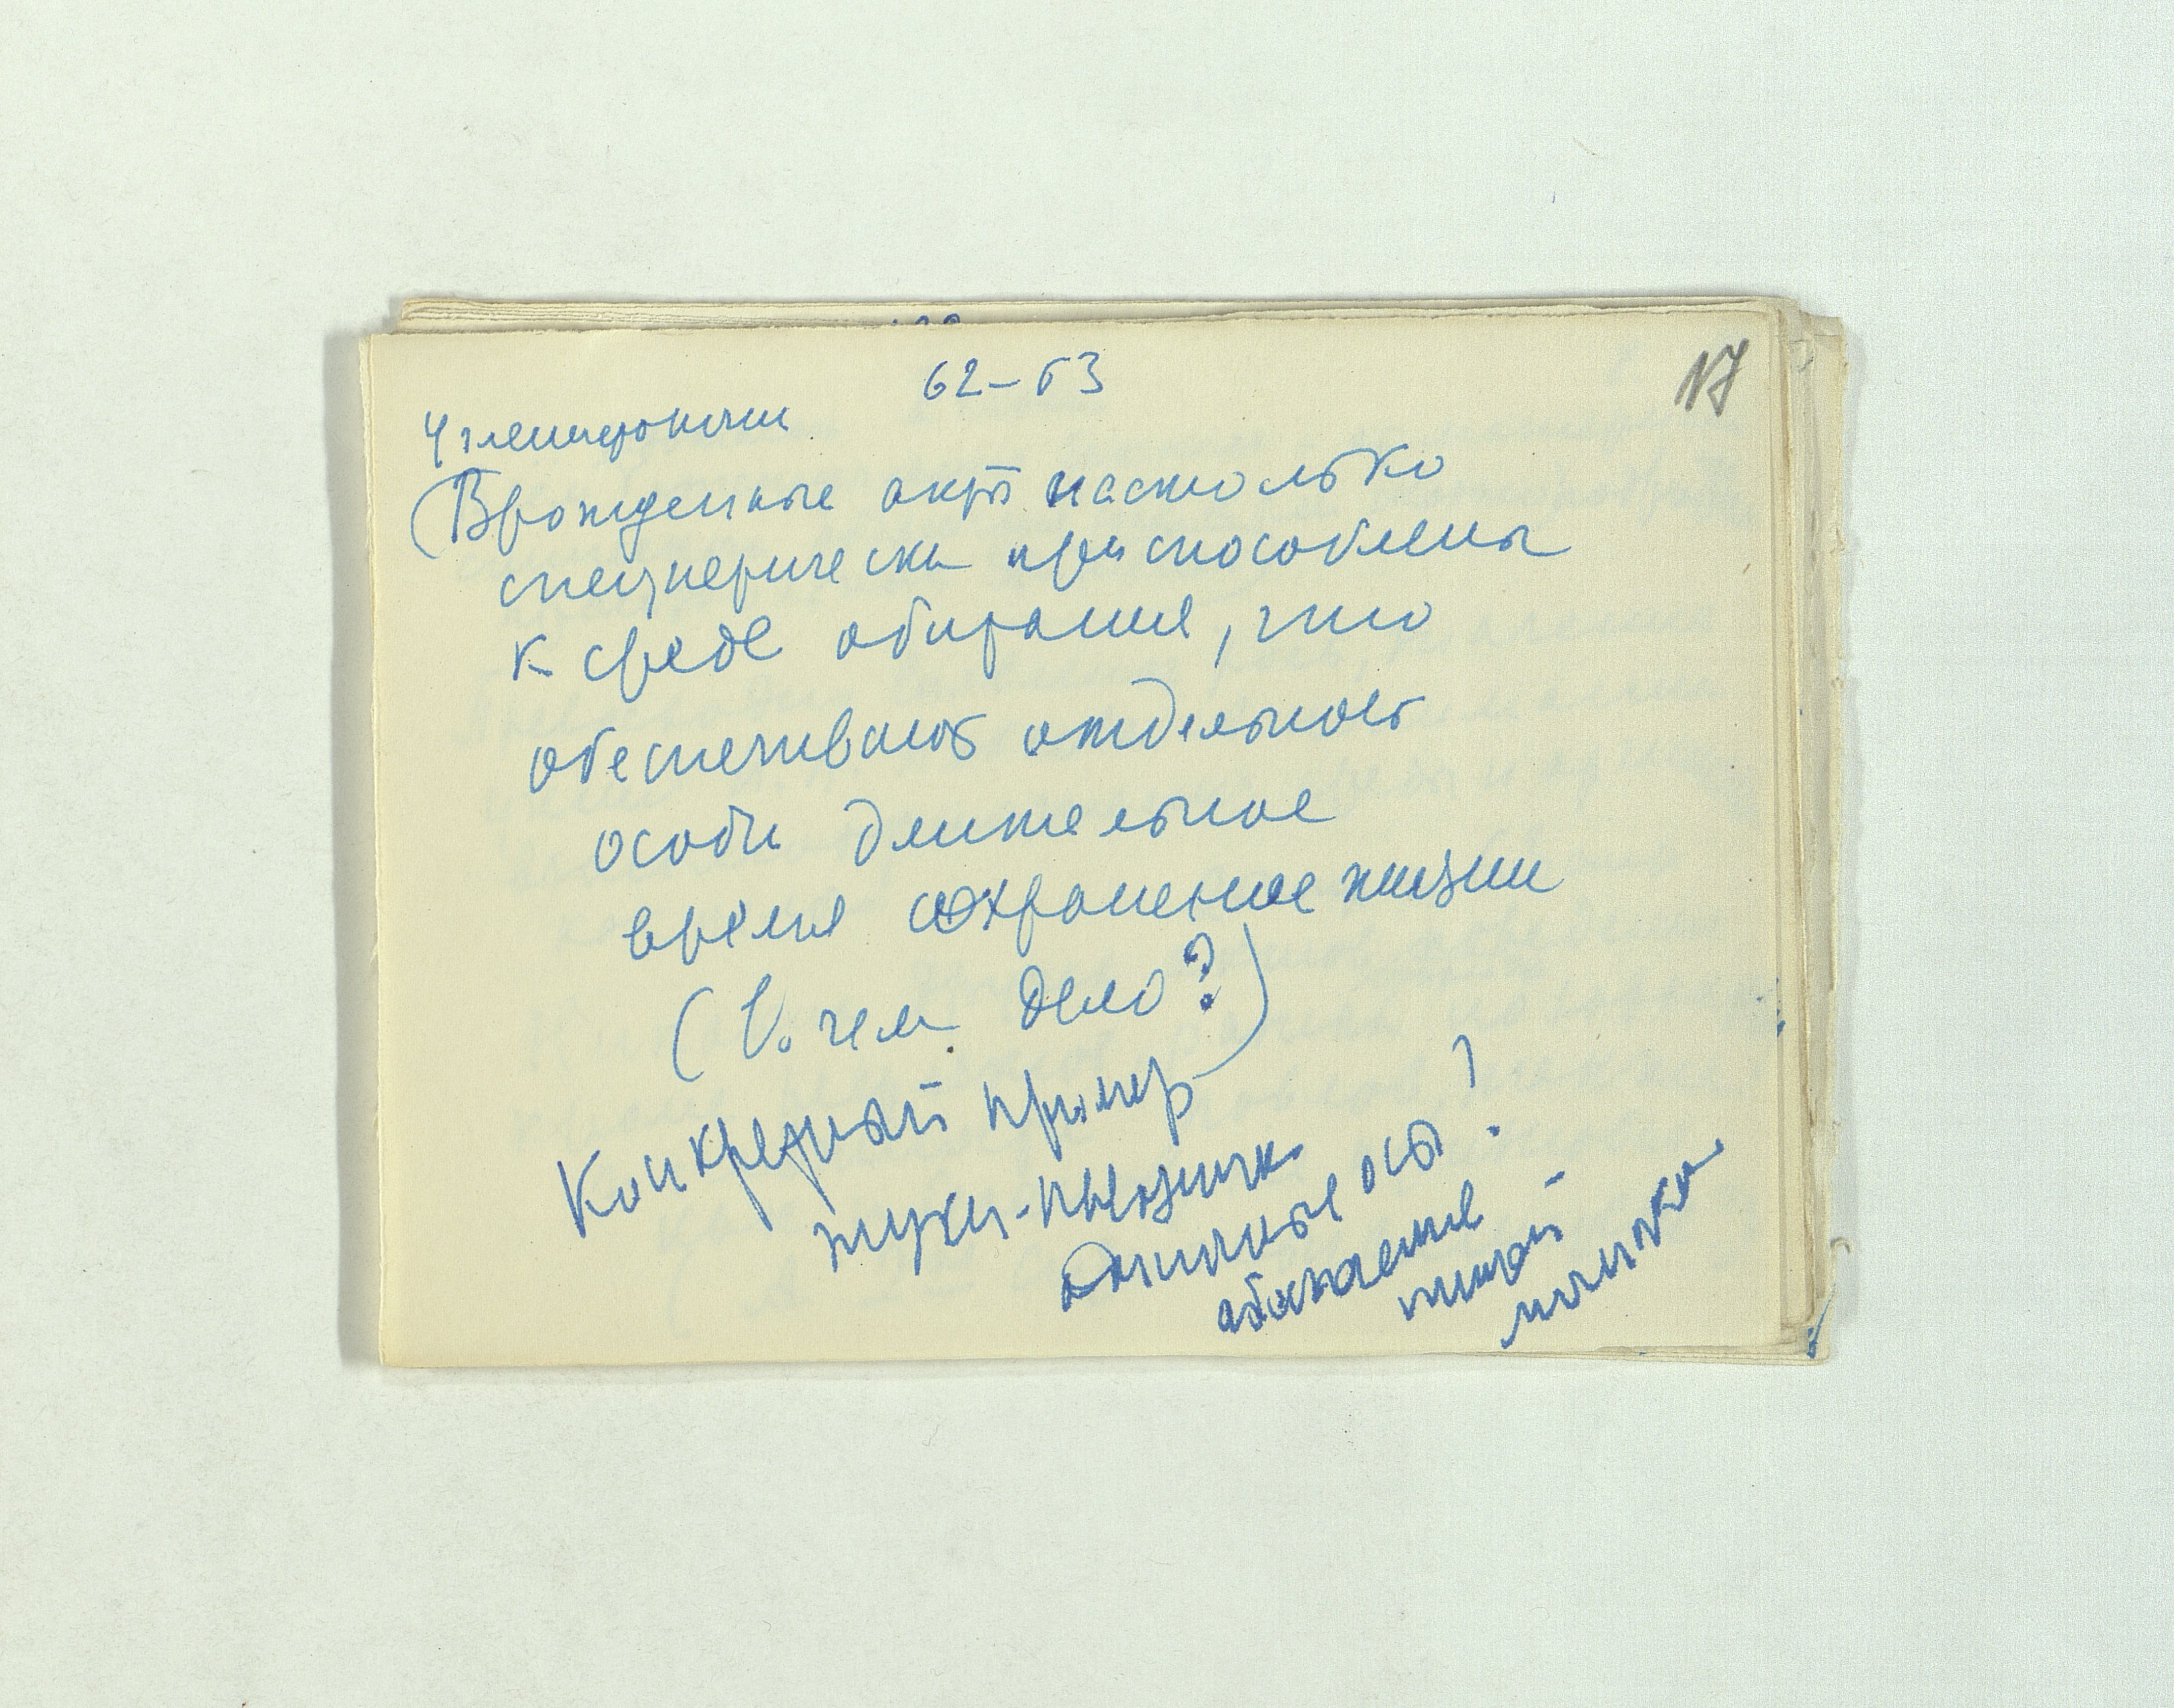 62-63
17
Членистоногих
(Врожденные акты настолько
специфически приспособлены
к среде обитания, что
обеспечивают отдельной
особи длительное
время сохранение жизни
(В чем дело?)
Конкретный пример
жуки-навозники
одиночные осы!
обоняние
пищей